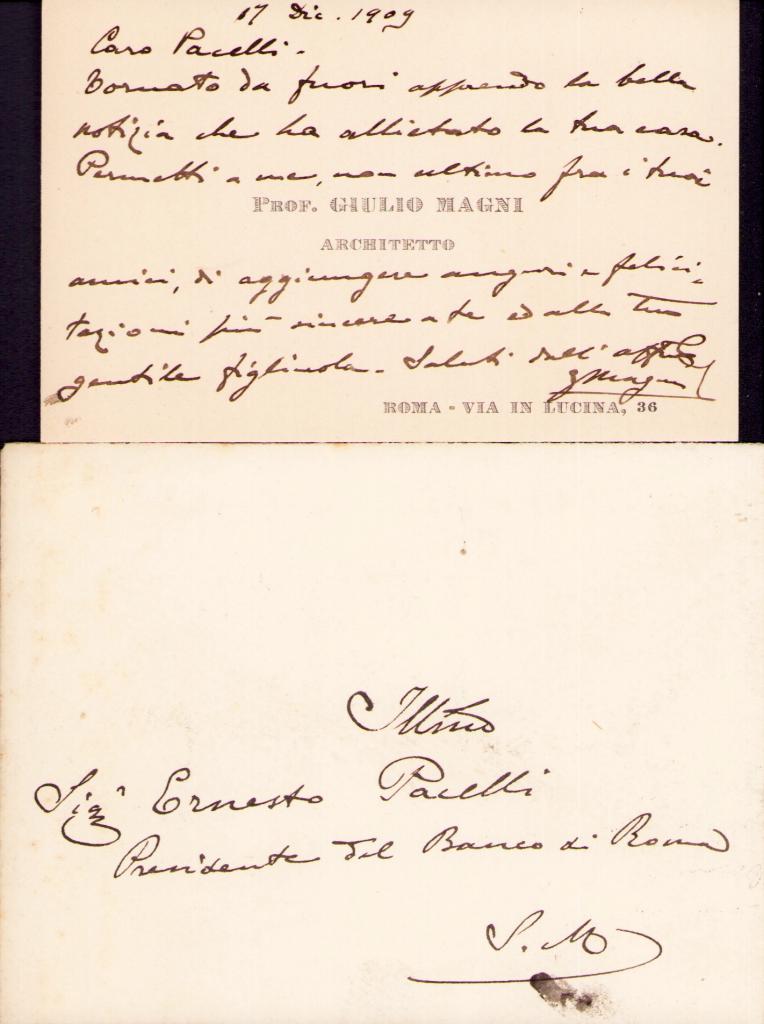 17 Dic. 1909
Caro Pacelli.
Tornato da fuori apprendo la bella
notizia che ha allietato la tua casa.
Permetti a me, non ultimo fra i tuoi
PROF. GIULIO MAGNI
ARCHITETTO
amici, di aggiungere auguri e felici-
tazioni più sincere a te ed alla tua
gentile figliuola. Saluti dall'
GMagni
ROMA - VIA IN LUCINA, 36
Illmo
Sigr Ernesto Pacelli
Presidente del Banco di Roma
S. M.